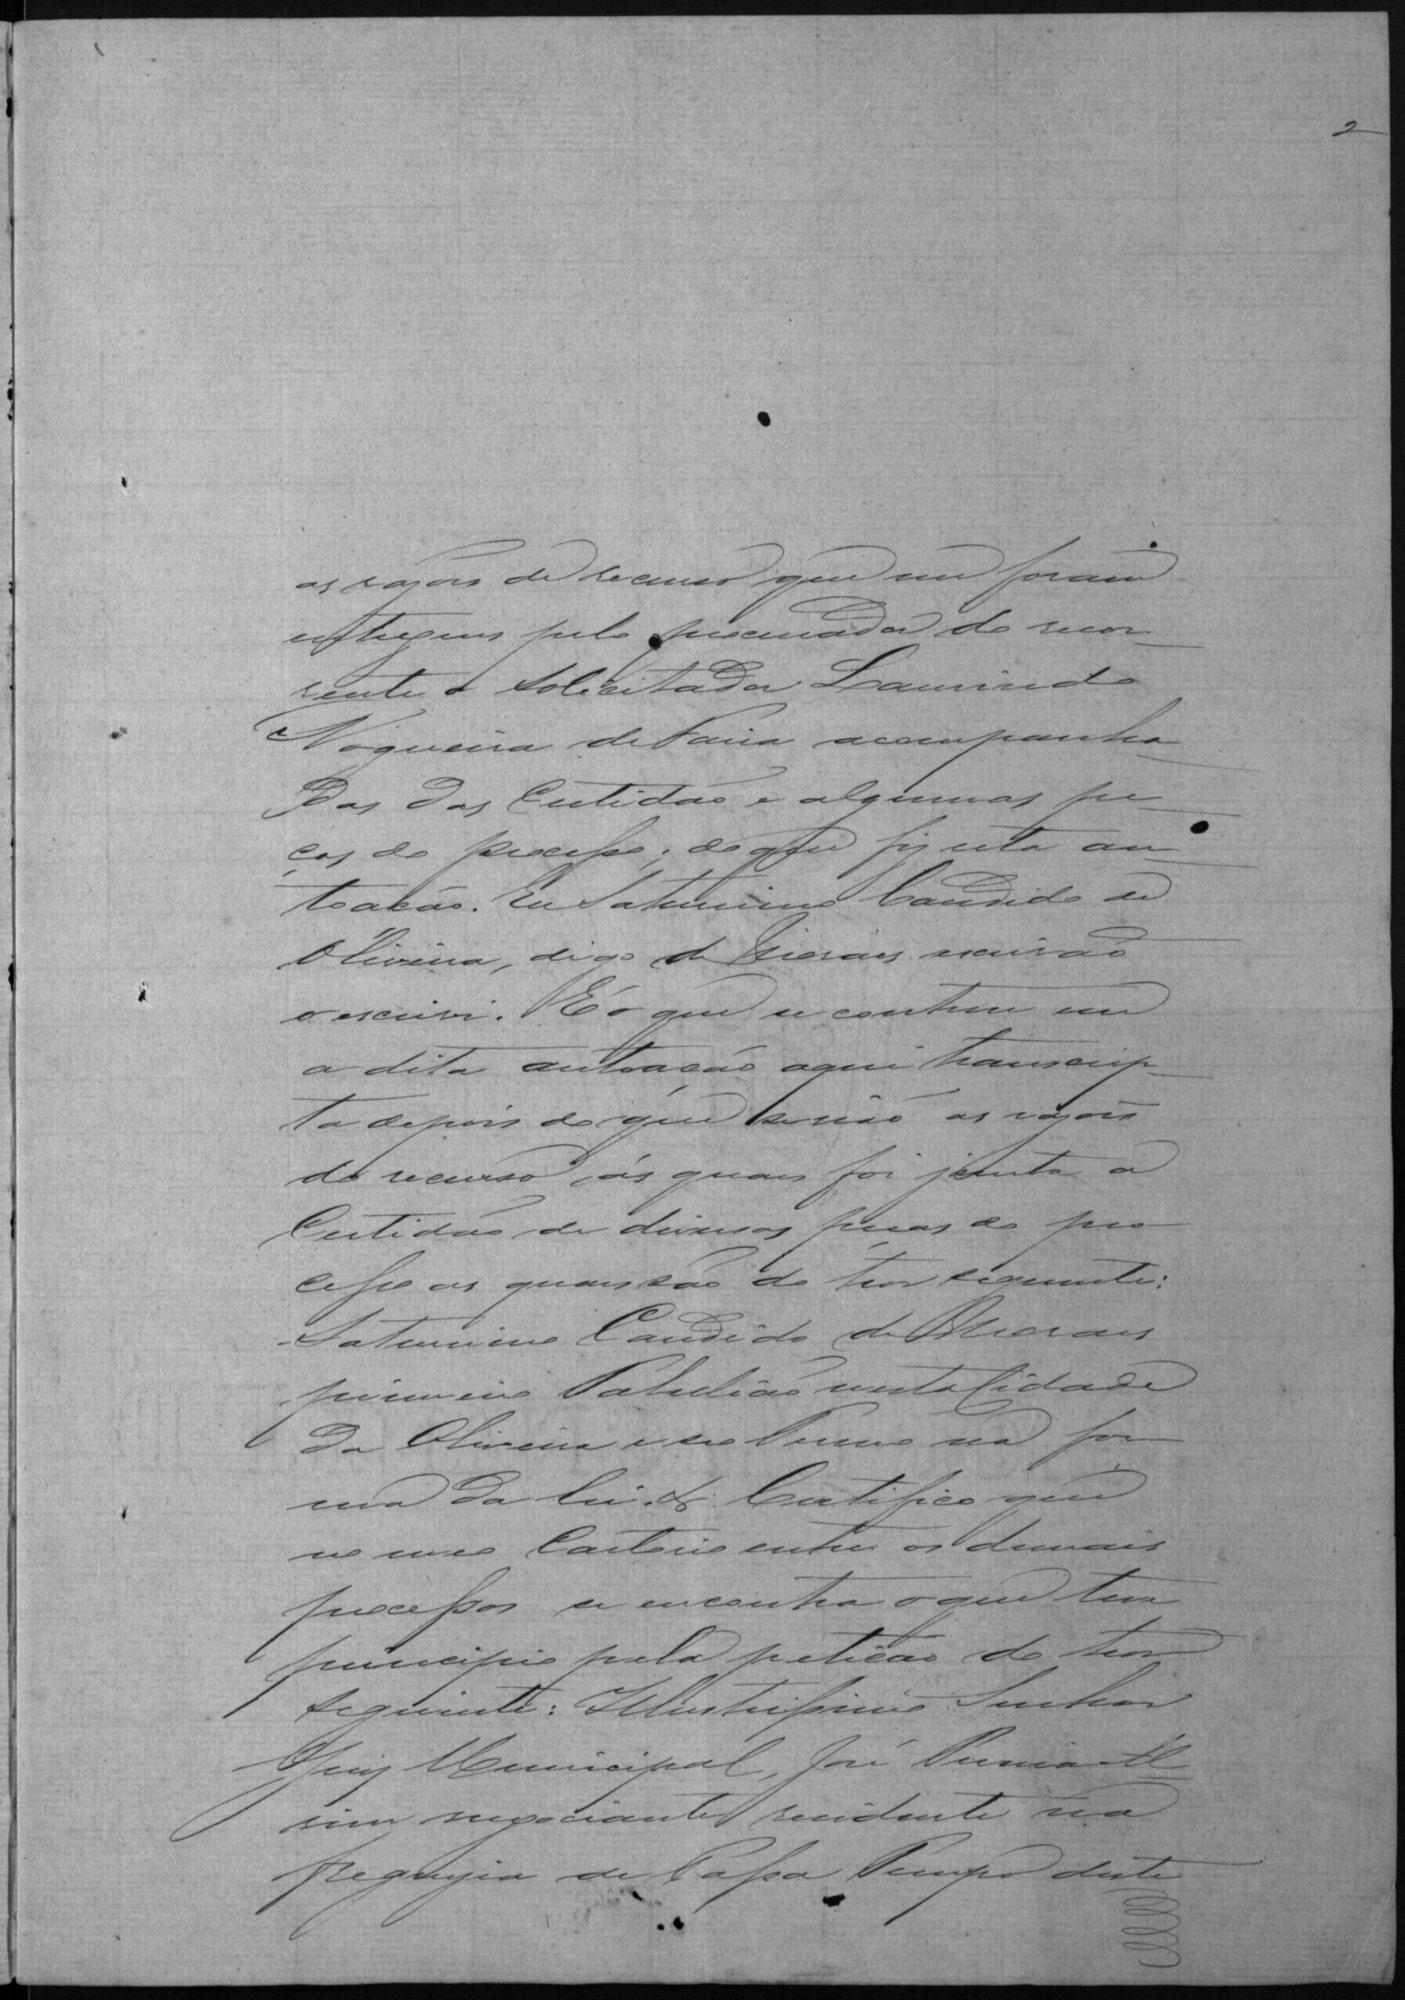 2
as rasões de recurso que me foram
entregues pelo procurador do recor-
rente o Solicitador Laurindo
Nogueira de Faria acompanha
das das Certidão e algumas pe-
ças do processo; do que fiz esta au-
toacão. Eu Saturnino Candido de
Oliveira, digo de Moraes escrivão
o escrivi. É o que se contem em
a dita autoacão aqui transcrip-
ta depois do que as rasões
do recurso ás quaes foi junta a
Certidão de diversas peças do pro-
cesso as quaes são do theor seguinte:
Saturnino Candido de Moraes
primeiro Tabelião nesta Cidade
da Oliveira e seo Termo na for-
ma da lei. &. Certifico que
no meo Cartorio entre os demais
processos se encontra o que tem
principio pela peticão do theor
seguinte: Illustrissimo Senhor
Juiz Municipal, José
negociante residente na
freguzia de Passa Tempo deste